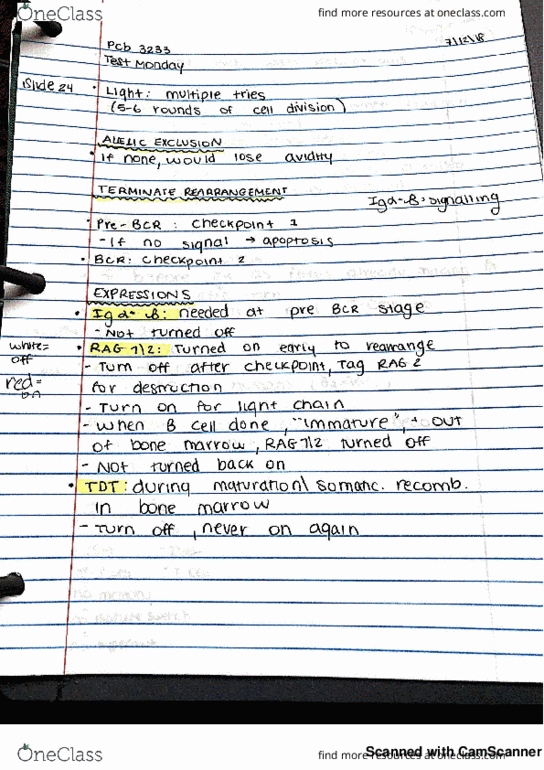 OneClass
find more resources at oneclass.com
Pcb 3233
7/12/18
Test Monday
Slide 24
• Light: multiple tries
(5-6 rounds of cell division)
ALLELIC EXCLUSION
• If none, would lose avidity
TERMINATE REARRANGEMENT
Igα-β: signalling
• Pre-BCR: Checkpoint 1
- If no signal → apoptosis
• BCR: Checkpoint 2
EXPRESSIONS
• Igα-β: needed at pre BCR stage
- Not turned off
white=
off
• RAG 1/2: Turned on early to rearrange
red=
on
- Turn off after checkpoint, Tag RAG 2
for destruction
- Turn on for light chain
- When B cell done, "immature" + out
of bone marrow, RAG 1/2 turned off
- Not turned back on
• TDT: during maturation/ somatic. recomb.
in bone marrow
- Turn off, never on again
OneClass
find more resources at oneclass.com
Scanned with CamScanner